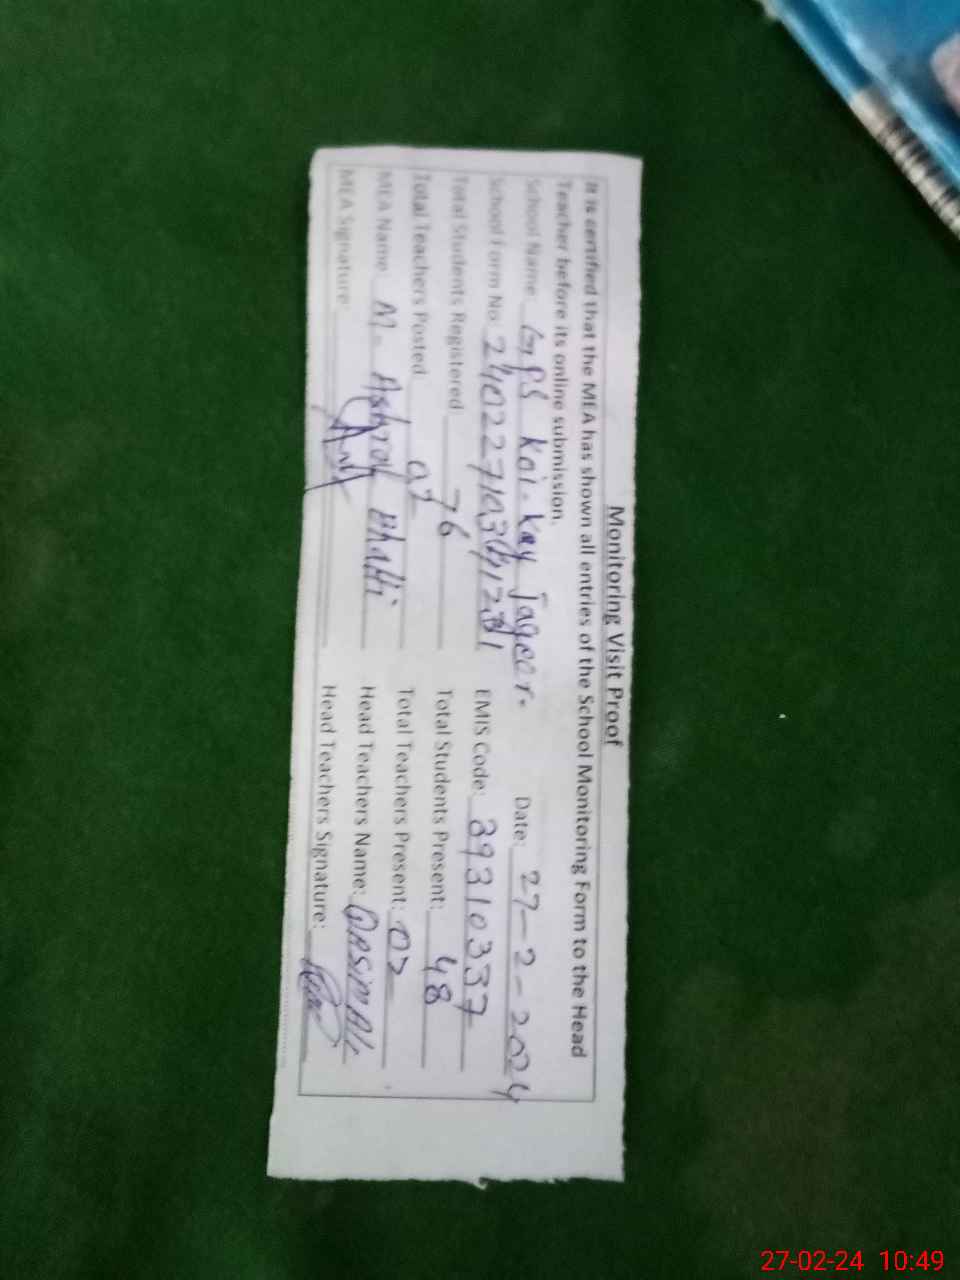 Monitoring Visit Proof
It is certified that the MEA has shown all entries of the School Monitoring Form to the Head
Teacher before its online submission.
School Name: GPS Koi-Kay Jageer. Date: 27-2-2024
School Form No: EMIS Code: 39310337
Total Students Registered 76 Total Students Present: 48
Total Teachers Posted 02 Total Teachers Present: 02
MEA Name M. Ashraf Bhatti Head Teachers Name: QASIM ALI
MEA Signature: Head Teachers Signature:
27-02-24 10:49